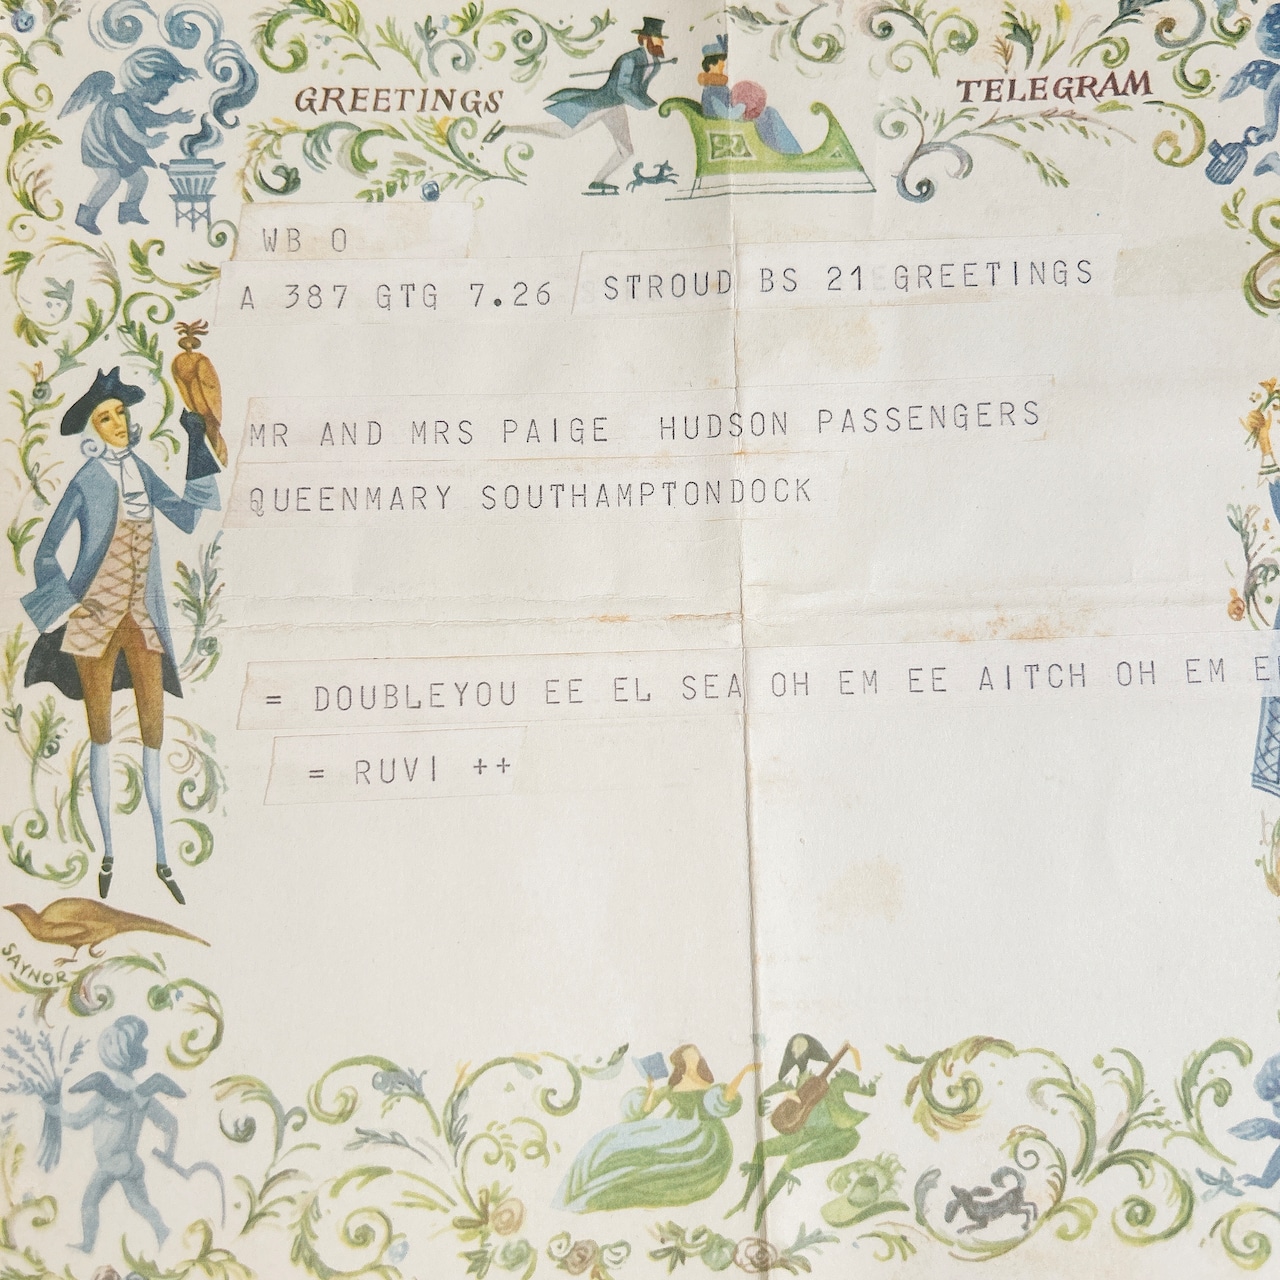 GREETINGS TELEGRAM
WB O
A 387 GTG 7.26 STROUD BS 21 GREETINGS
MR AND MRS PAIGE HUDSON PASSENGERS
QUEENMARY SOUTHAMPTONDOCK
= DOUBLEYOU EE EL SEA OH EM EE AITCH OH EM EE
= RUVI ++
SAYNOR